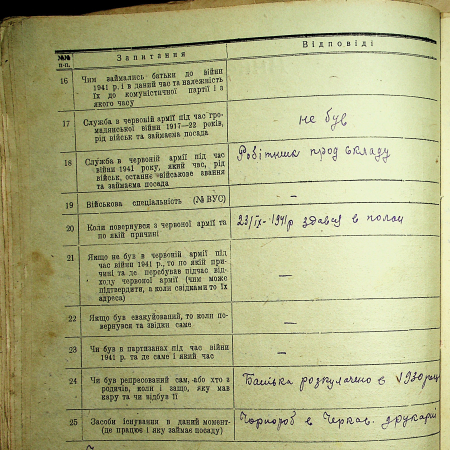 №№ п-п. Запитання Відповіді
16 Чим займались батьки до війни
1941 р. і в даний час та належність
їх до комуністичної партії і з
якого часу —
17 Служба в червоній армії під час гро-
мадянської війни 1917—22 років,
рід військ та займаєма посада не був
18 Служба в червоній армії під час
війни 1941 року, який час, рід
військ, останнє військове звання
та займаєма посада Робітник прод складу
19 Військова спеціальність (№ ВУС) —
20 Коли повернувся з червоної армії та
по якій причині 23/ІХ-1941р здався в полон
21 Якщо не був в червоній армії під
час війни 1941 р., то по якій при-
чині та де перебував підчас від-
ходу червоної армії (чим може
підтвердити, а коли свідками то їх
адреса) —
22 Якщо був евакуйований, то коли по-
вернувся та звідки саме —
23 Чи був в партизанах під час війни
1941 р. та де саме і який час —
24 Чи був репресований сам, або хто з
родичів, коли і защо, яку мав
кару та чи відбув її Батька розкулачено в 1930 році
25 Засоби існування в даний момент
(де працює і яку займає посаду) в Черкас. друкарні